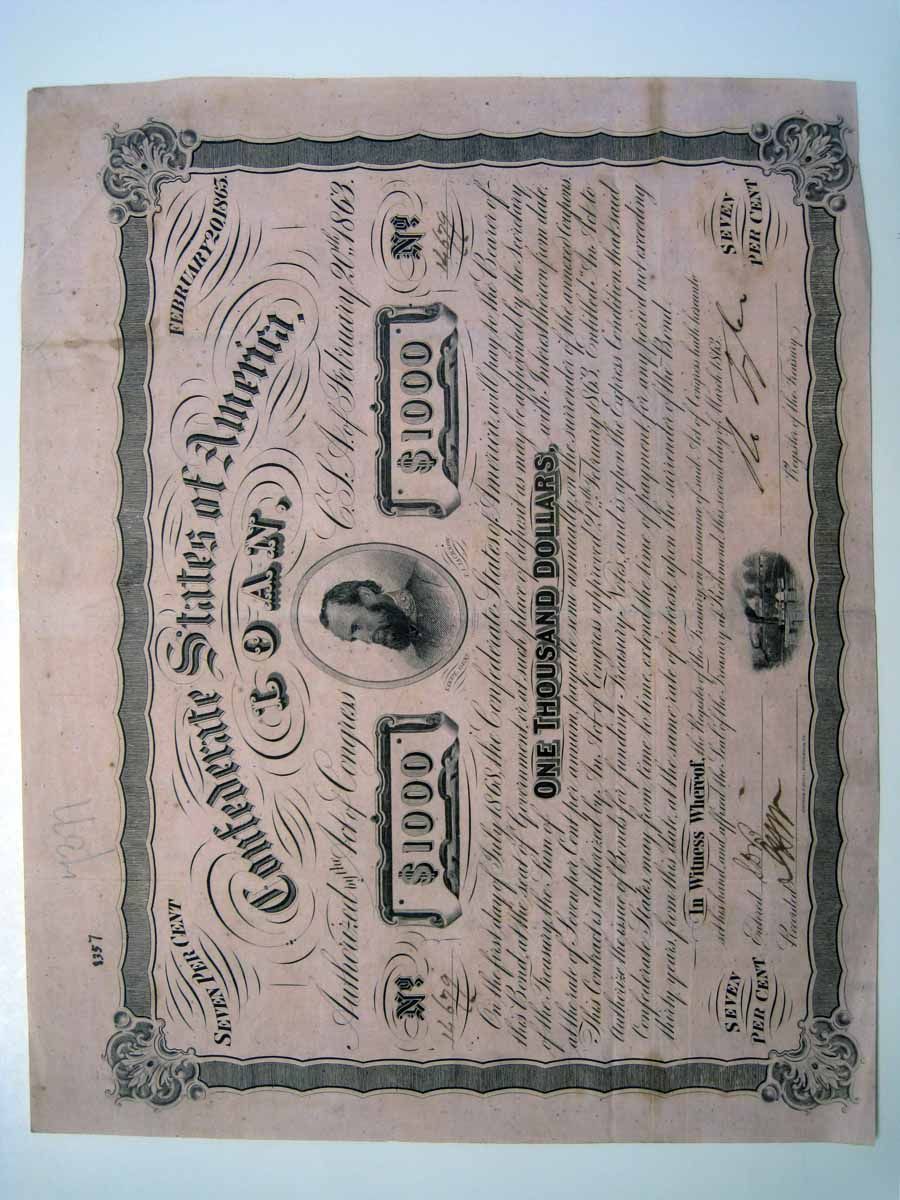 8357
SEVEN PER CENT
FEBRUARY 20, 1863.
Confederate States of America,
LOAN,
Authorized by the Act of Congress C.S.A. of February 20th 1863.
Nº $1000 $1000 Nº
On the first day of July 1868, the Confederate States of America, will pay to the Bearer of
this Bond, at the seat of Government, or at such place of deposit as may be appointed by the Secretary
of the Treasury, the Sum of ONE THOUSAND DOLLARS, with Interest thereon from date,
at the rate of Seven per Cent per annum, payable on the surrender of the annexed Coupons.
This Contract is authorized by An Act of Congress approved February 1863, Entitled "An Act to
Authorize the issue of Bonds for funding Treasury Notes" and is upon the Express Condition, that said
Confederate States may from time to time, extend the time of payment for any period not exceeding
thirty years from this date, at the same rate of Interest, upon the surrender of this Bond.
In Witness Whereof, the Register of the Treasury, in pursuance of said Act of Congress, hath hereunto
set his hand and affixed the Seal of the Treasury at Richmond, this second day of March 1863.
Entered
Recorded
Register of the Treasury
SEVEN PER CENT
SEVEN PER CENT